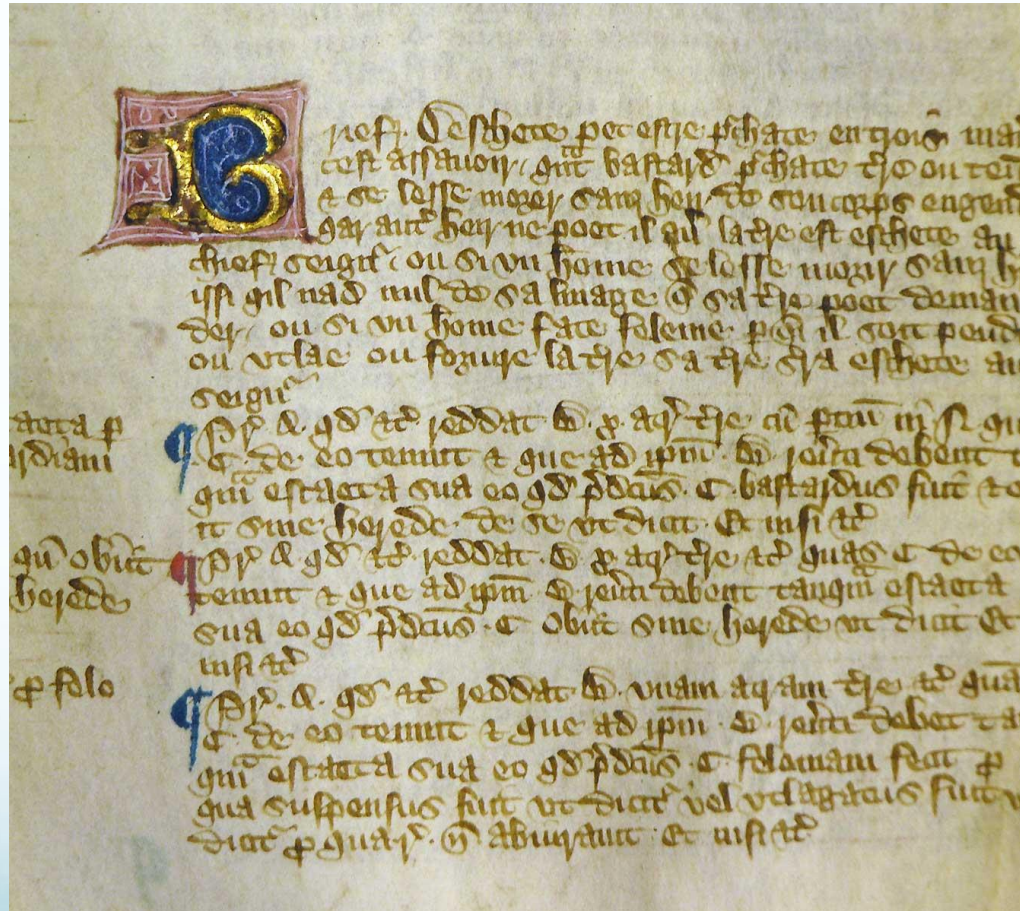 Brief. Deschete pet estre pchate en trois man
cest assavoir. qnt bastard pchate tre ou ten
& se lesse morer sanz heir de son corps engend
qar autr heir ne poet il la tre est eschete au
chief seignr. ou si vn home se lesse morir sanz h
issi qil nad nul de sa linage q sa tre poet deman
der. ou si vn home face felonie p qi il soit pend
ou vtlae ou foriure la tre sa tre sra eschete au
seignr
Pr. A. qd etc reddat B. x. acr tre cu ptin in N. qu
C. de eo tenuit & que ad ipm. B. reuti debent t
qm escaeta sua eo qd pdcus. C. bastardus fuit & o
it sine herede de se vt dicit. Et nisi etc
Pr A qd etc reddat. B x acr tre etc quas C de eo
tenuit & que ad ipm B reuti debent tanqm escaeta
sua eo qd pdcus. C obiit sine herede vt dicit Et
nisi etc
Pr. A. qd etc reddat. B. vnam acram tre etc qua
C. de eo tenuit & que ad ipm. B. reuti debet ta
qm escaeta sua eo qd pdcus. C. feloniam fecit p
qua suspensus fuit vt dicit vel vtlagatus fuit v
dicit p qua abiurauit. Et nisi etc
aeta p
rdiam
qn obiit
herede
p felo